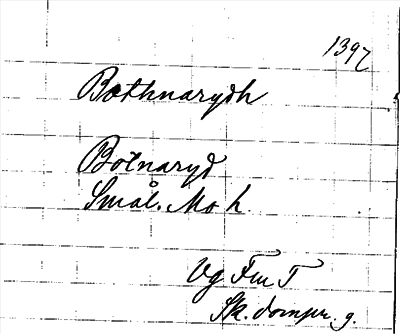 1397
Bothnarydh
Botnaryd
Smål. Mo h
Vg Fru T
Sk. dompr. g.